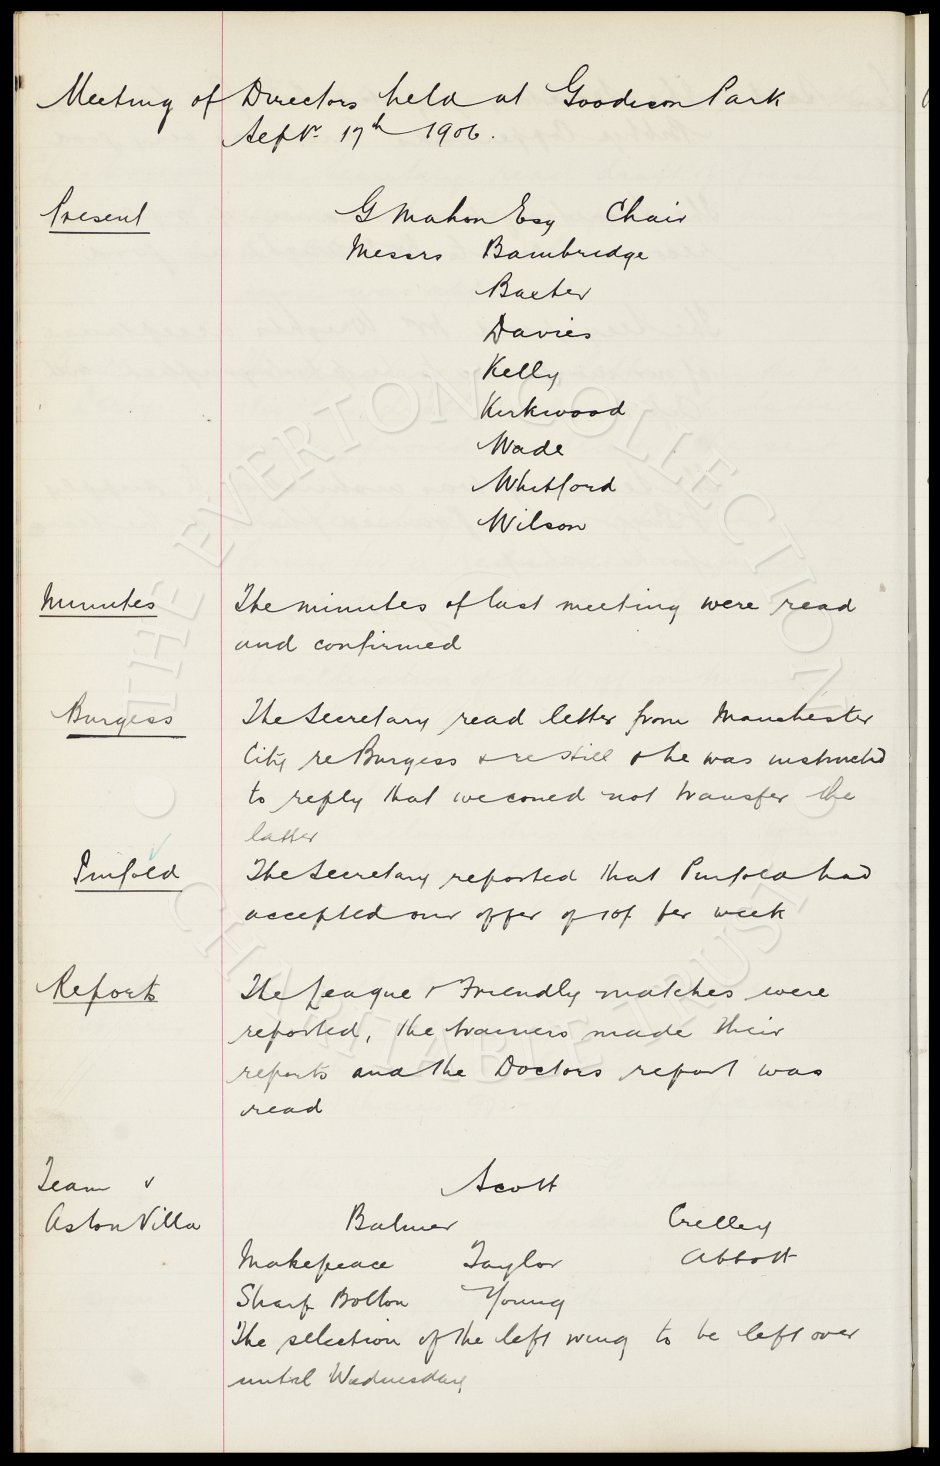 Meeting of Directors held at Goodison Park
Septr. 17th 1906.
Present
G Mahon Esq Chair
Messrs Bainbridge
Baxter
Davies
Kelly
Kirkwood
Wade
Whitford
Wilson
Minutes
The minutes of last meeting were read
and confirmed
Burgess
The Secretary read letter from Manchester
City re Burgess & re Hill & he was instructed
to reply that we could not transfer the
latter
Pinfold
The Secretary reported that Pinfold had
accepted our offer of 10/- per week
Reports
The League & Friendly matches were
reported, the trainers made their
reports and the Doctors report was
read
Team v
Aston Villa
Scott
Balmer Crelley
Makepeace Taylor Abbott
Sharp Bolton Young
The selection of the left wing to be left over
until Wednesday
THE EVERTON COLLECTION
CHARITABLE TRUST